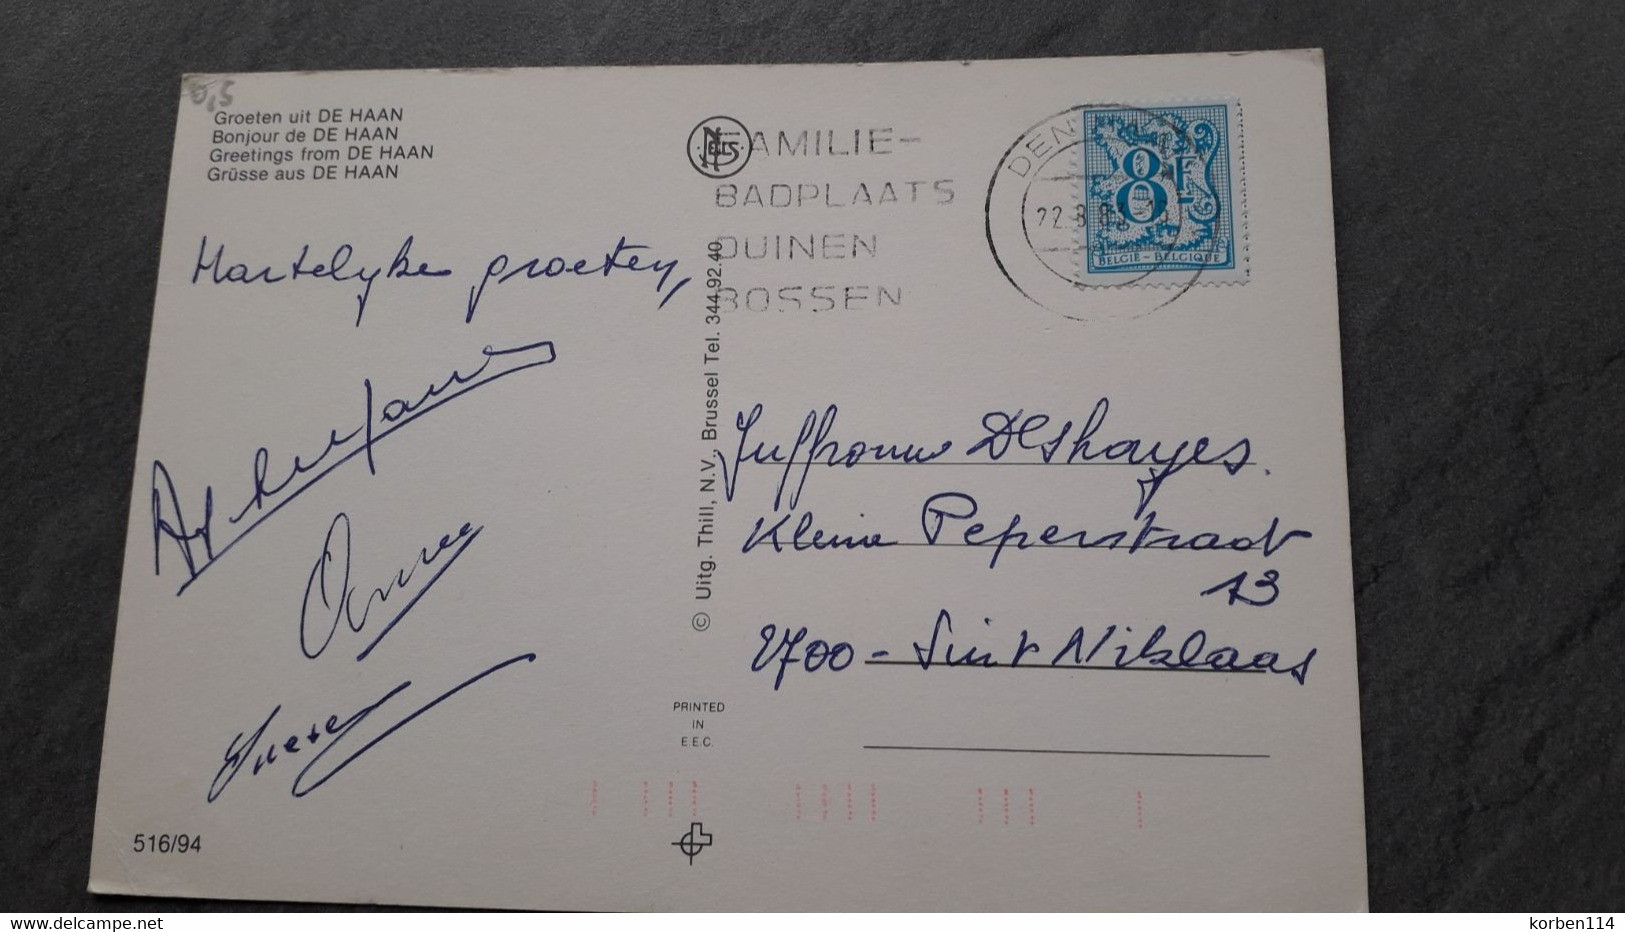 0,5
Groeten uit DE HAAN
Bonjour de DE HAAN
Greetings from DE HAAN
Grüsse aus DE HAAN
NELS
FAMILIE-
BADPLAATS
DUINEN
BOSSEN
DEN
22.8.83
8F
BELGIË-BELGIQUE
Hartelyke groeten,
© Uitg. Thill, N.V., Brussel Tel. 344.92.40
Juffrouw Deshayes.
Kleine Peperstraat
13
2700 - Sint Niklaas
PRINTED
IN
E.E.C.
516/94
www.delcampe.net
korben114